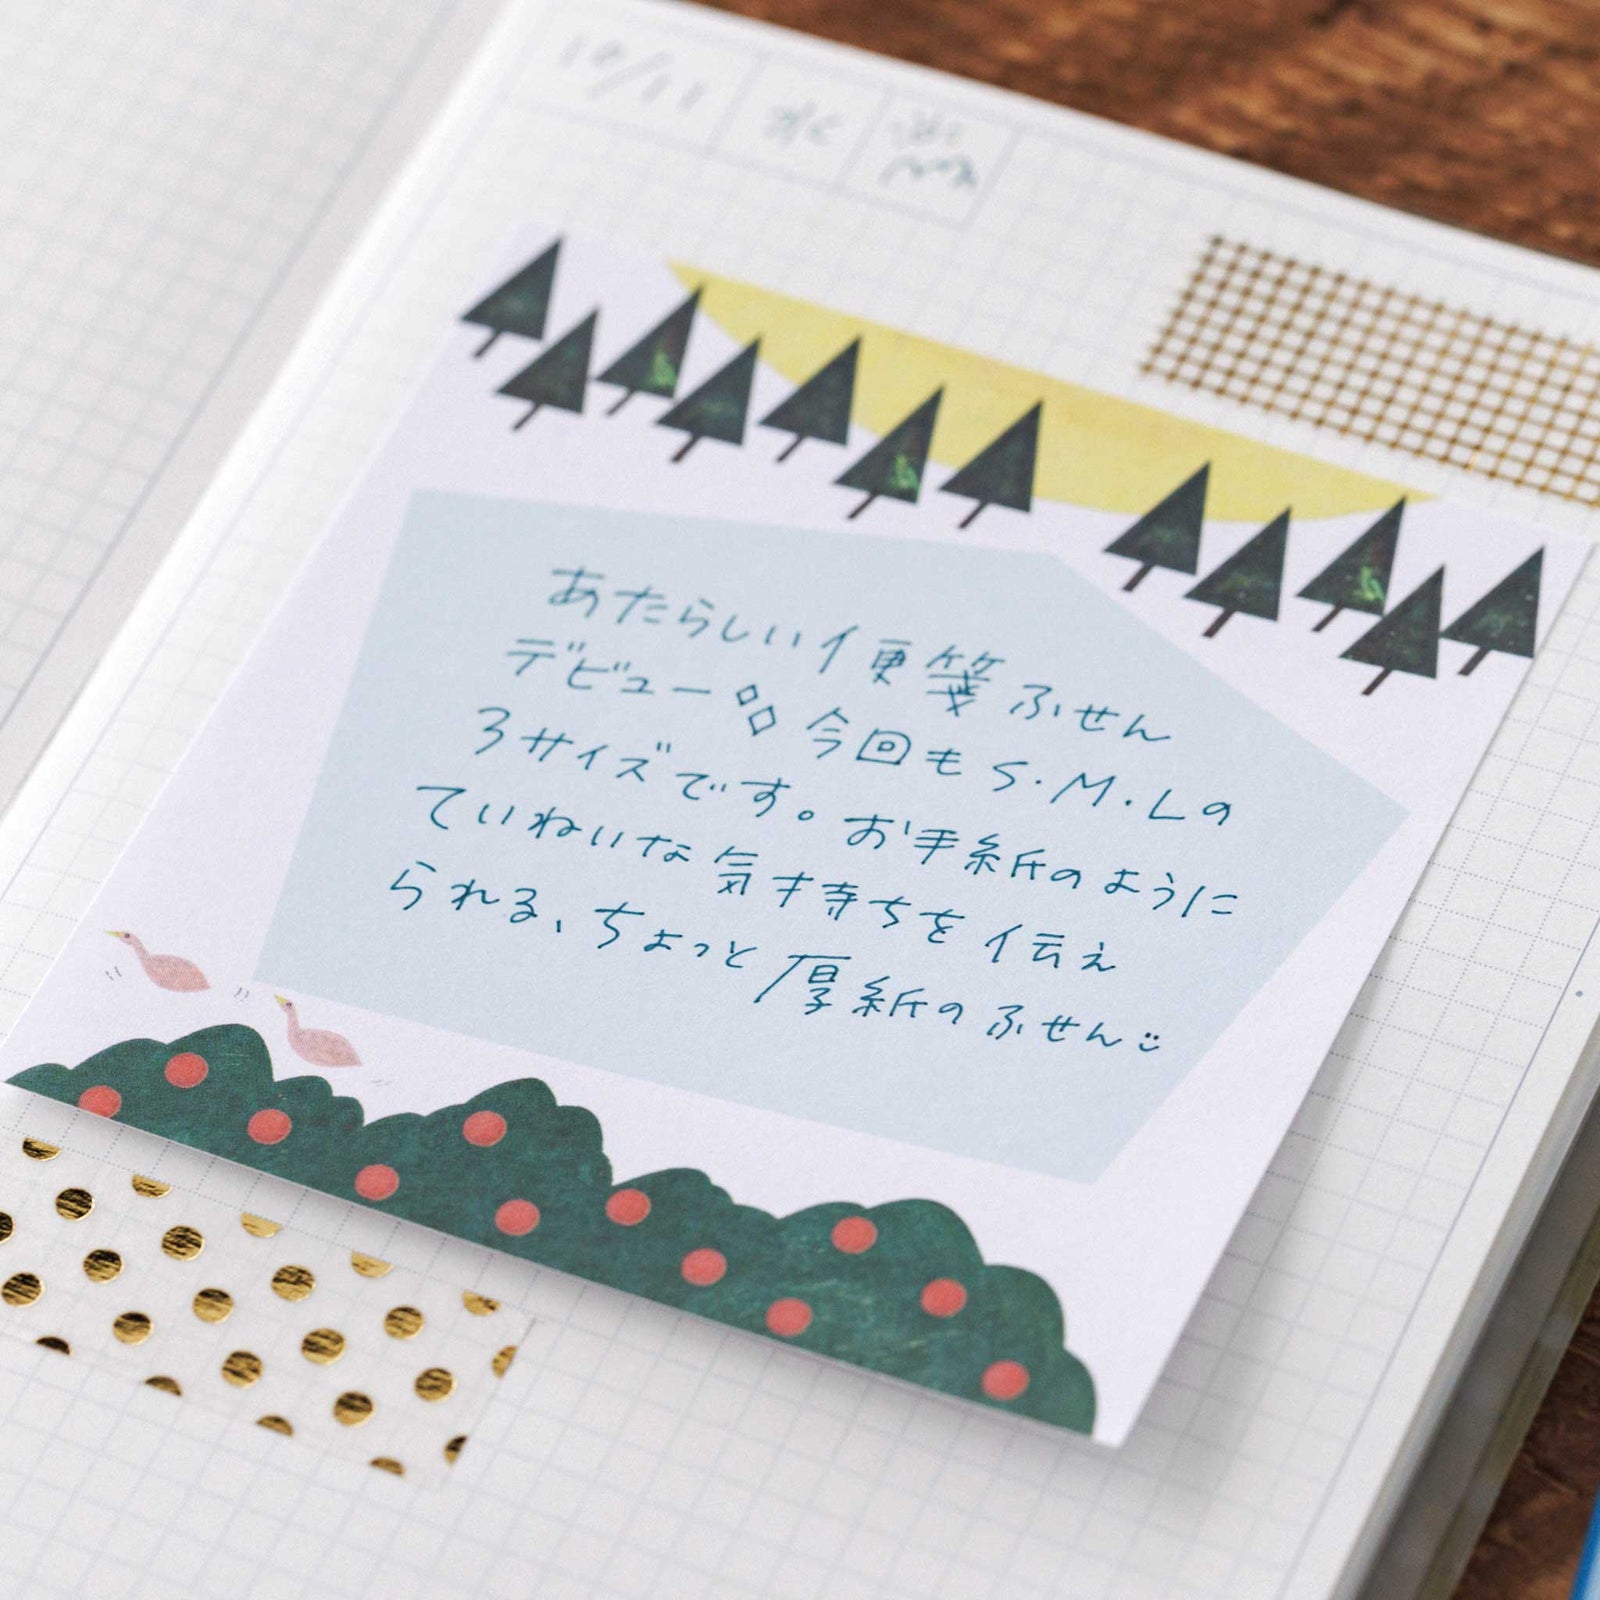 水
あたらしい便箋ふせん
デビュー 今回も S・M・Lの
3サイズです。お手紙のように
ていねいな気持ちを伝え
られる、ちょっと厚紙のふせん